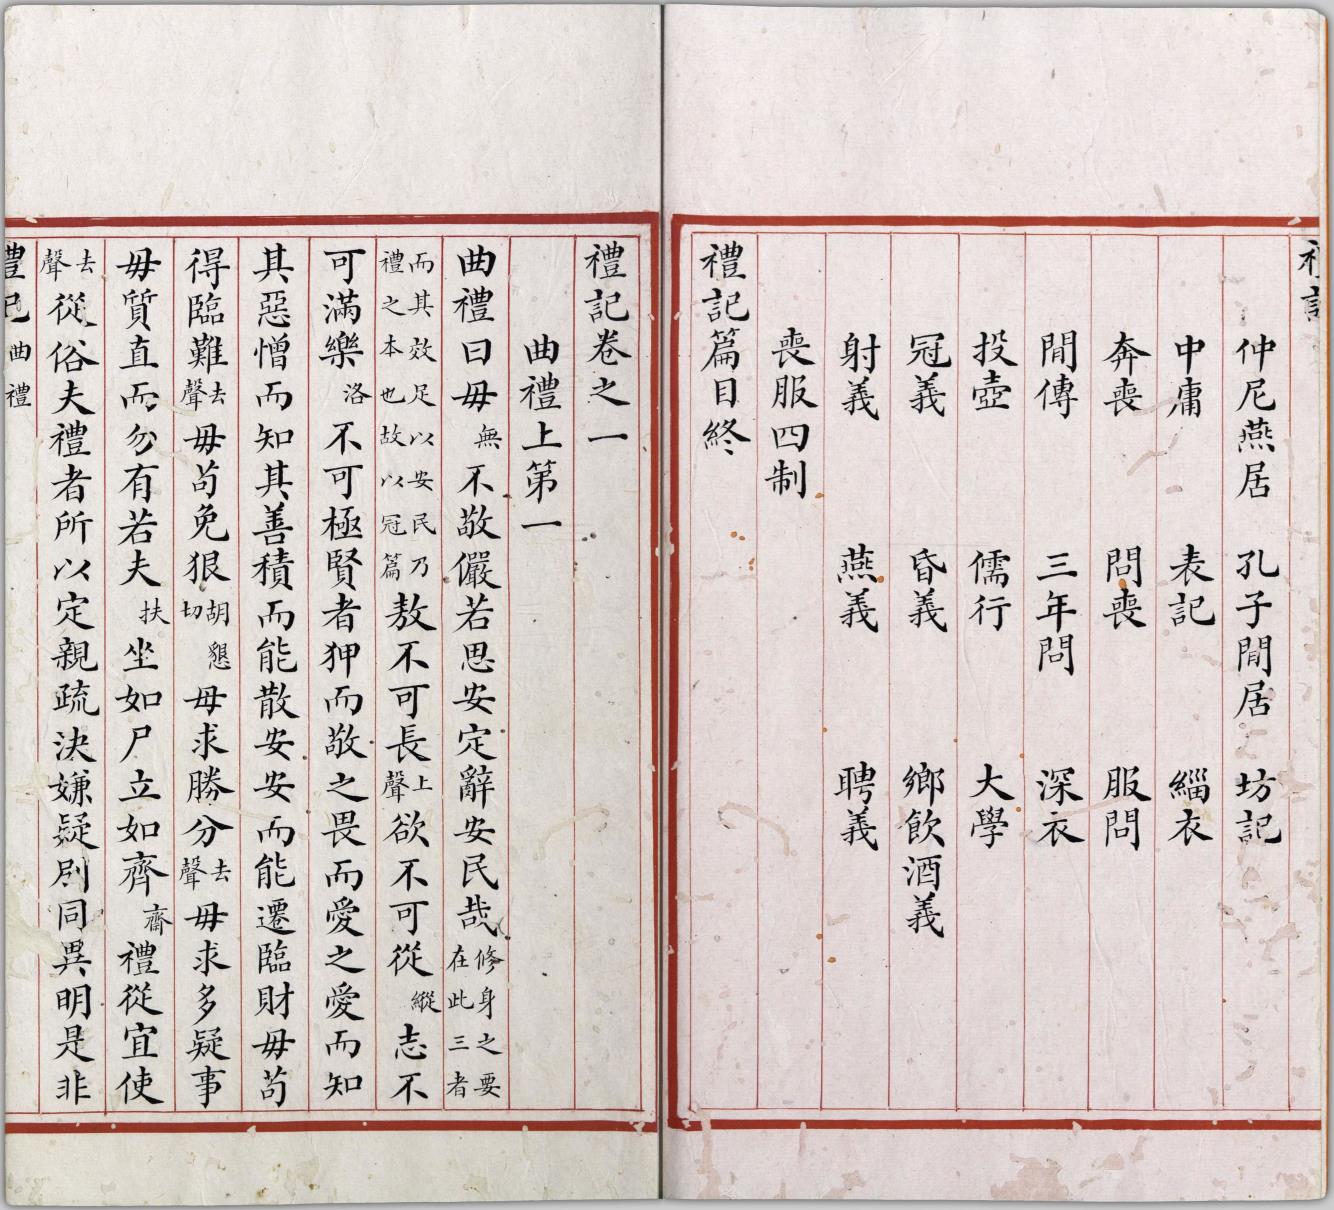 禮記
仲尼燕居 孔子閒居 坊記
中庸 表記 緇衣
奔喪 問喪 服問
閒傳 三年問 深衣
投壺 儒行 大學
冠義 昏義 鄉飲酒義
射義 燕義 聘義
喪服四制
禮記篇目終
禮記卷之一
曲禮上第一
曲禮曰毋無不敬儼若思安定辭安民哉修身之要在此三者
而其效足以安民乃禮之本也故以冠篇敖不可長上聲欲不可從縱志不
可滿樂洛不可極賢者狎而敬之畏而愛之愛而知
其惡憎而知其善積而能散安安而能遷臨財毋茍
得臨難去聲毋茍免狠胡懇切毋求勝分去聲毋求多疑事
毋質直而勿有若夫扶坐如尸立如齊齋禮從宜使
去聲從俗夫禮者所以定親疏決嫌疑別同異明是非
禮記 曲禮